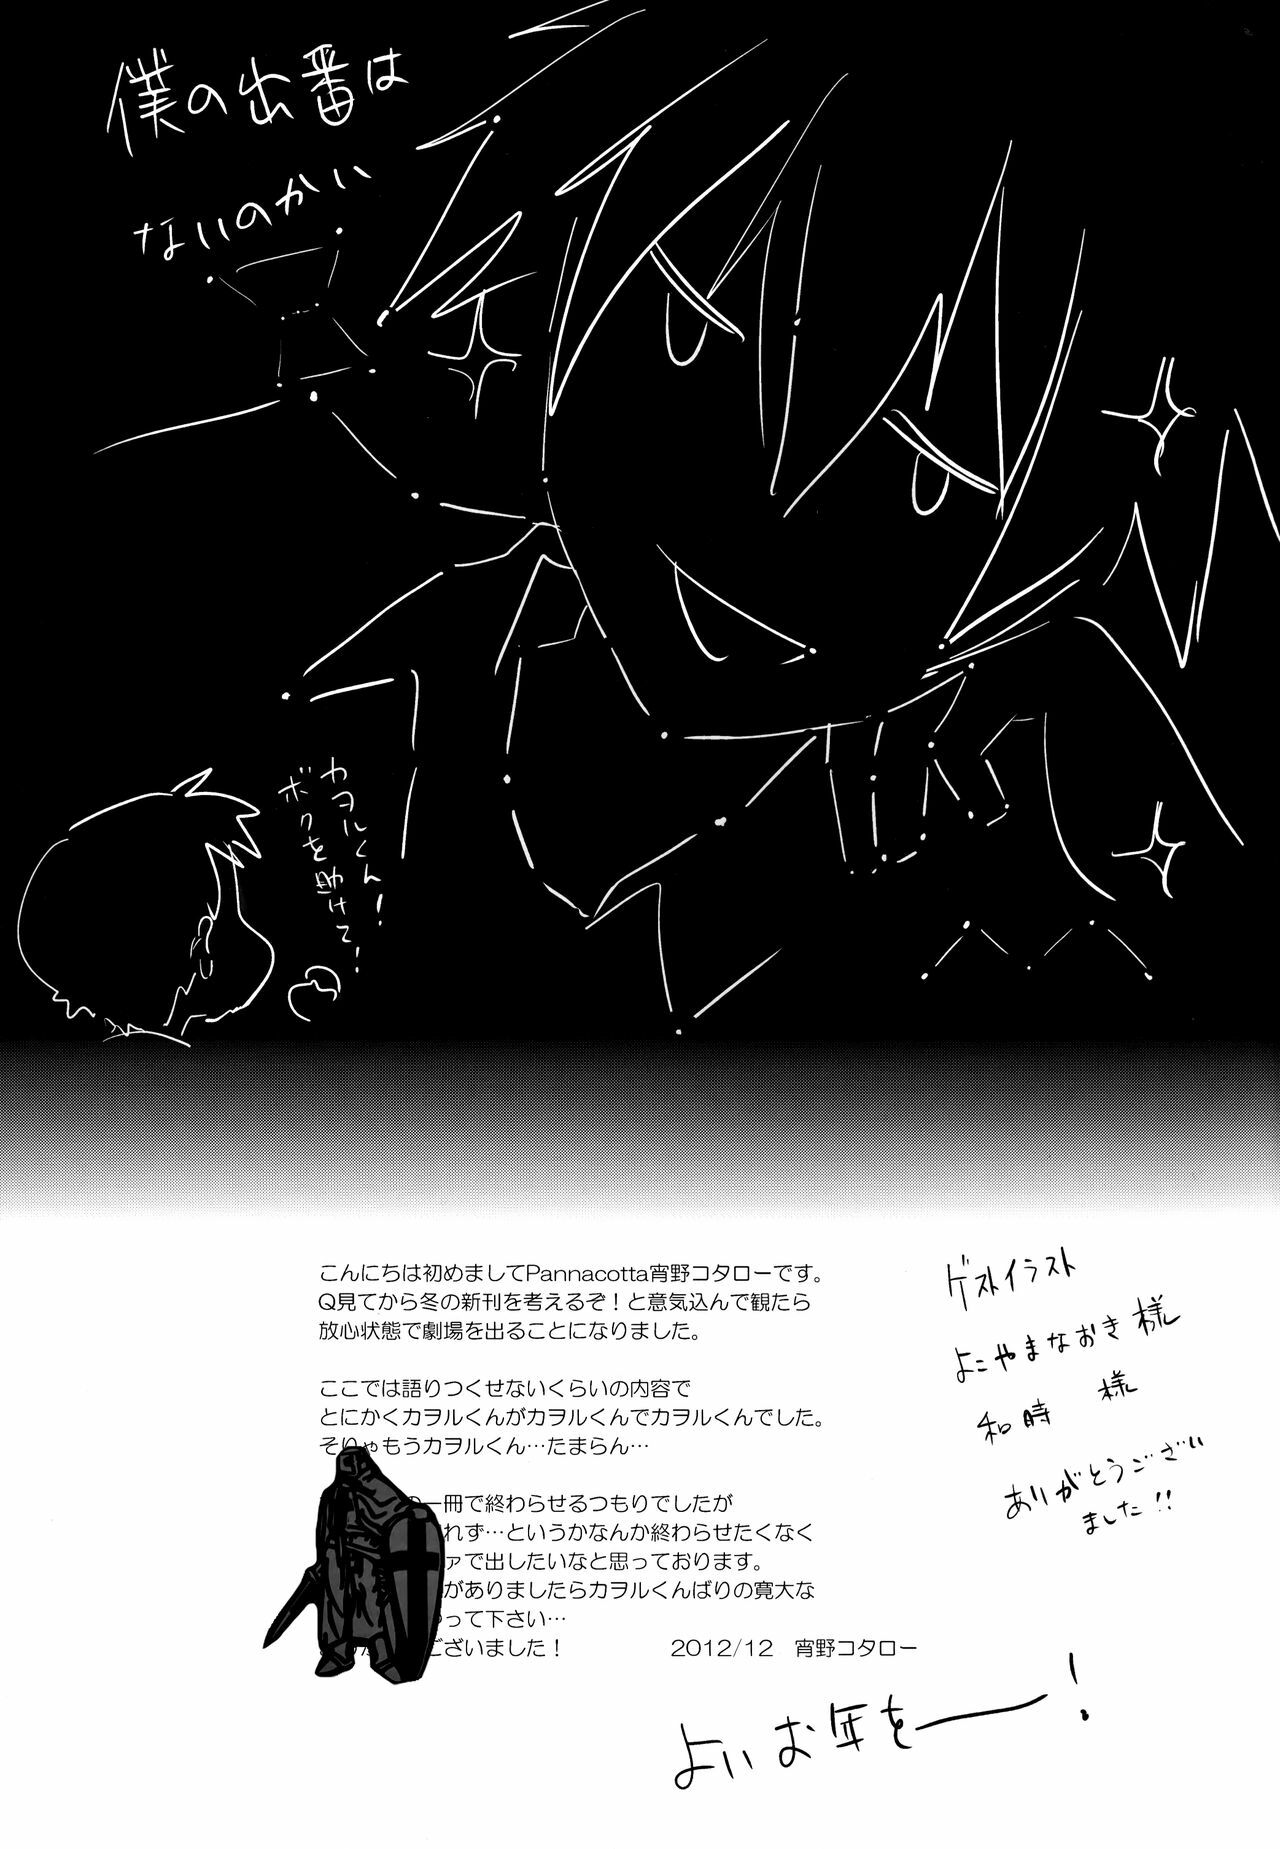 僕の出番は
ないのかい
カヲルくん!
ボクを助けて!
こんにちは初めましてPannacotta宵野コタローです。
Q見てから冬の新刊を考えるぞ！と意気込んで観たら
放心状態で劇場を出ることになりました。
ここでは語りつくせないくらいの内容で
とにかくカヲルくんがカヲルくんでカヲルくんでした。
そりゃもうカヲルくん…たまらん…
一冊で終わらせるつもりでしたが
れず…というかなんか終わらせたくなく
ァで出したいなと思っております。
がありましたらカヲルくんばりの寛大な
って下さい…
ございました！ 2012/12 宵野コタロー
ゲストイラスト
よこやまなおき様
和時 様
ありがとうござい
ました!!
よいお年をー!